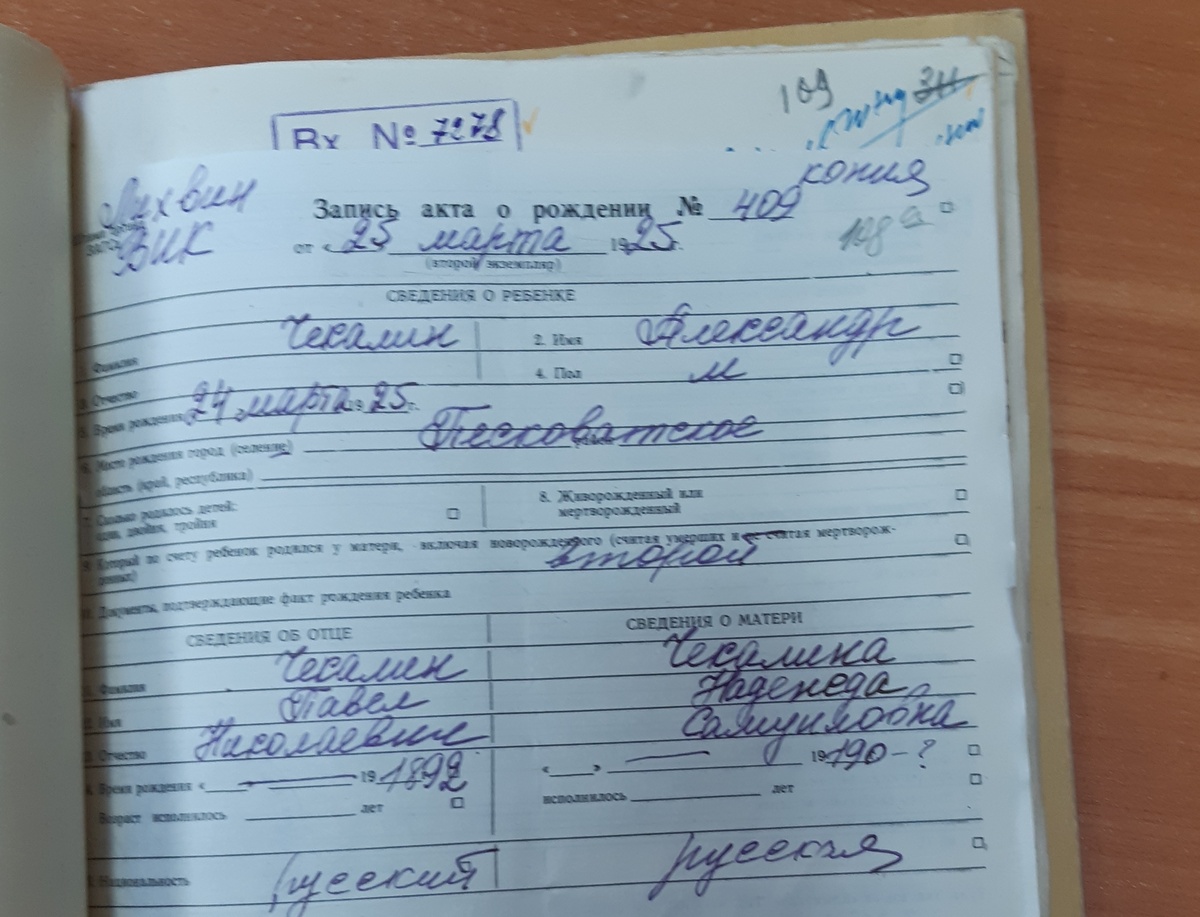 109 311
Вх № 7278
копия
Лихвин
ВИК
Запись акта о рождении № 409
от «25 марта 1925г.
(второй экземпляр)
108а
СВЕДЕНИЯ О РЕБЕНКЕ
Фамилия Чекалин 2. Имя Александр
3. Отчество 4. Пол м
5. Время рождения 24 марта 1925г.
6. Место рождения город (селение) Песковатское
область (край, республика)
7. Сколько родилось детей: 8. Живорожденный или
один, двойня, тройня мертворожденный
9. Который по счету ребенок родился у матери, включая новорожденного (считая умерших и не считая мертворож-
денных) второй
10. Документы, подтверждающие факт рождения ребенка
СВЕДЕНИЯ ОБ ОТЦЕ СВЕДЕНИЯ О МАТЕРИ
1. Фамилия Чекалин Чекалина
2. Имя Павел Надежда
3. Отчество Николаевич Самуиловна
4. Время рождения «____» 19 1892 «____» 19 190-?
Возраст исполнилось лет исполнилось лет
5. Национальность русский русская